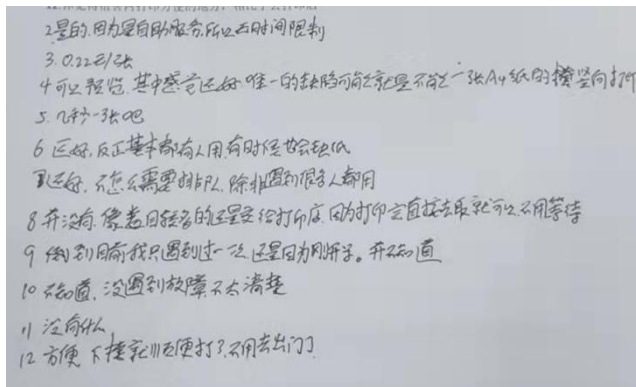 2 是的,因为是自助服务,所以无时间限制
3. 0.22元/张
4 可以预览,其中感觉还好 唯一的缺陷可能就是不能一张A4纸的横竖向打印
5. 几秒一张吧
6 还好,反正基本都有人用,有时候也会缺纸
7 还好,不怎么需要排队,除非遇到很多人都用
8 并没有,像数目较多的还是交给打印店,因为打印完直接去取就可以,不用等待
9 到目前我只遇到过一次,还是因为刚开学。并不知道
10 不知道,没遇到故障,不太清楚
11 没有什么
12 方便 下楼就顺便打了,不用去出门了